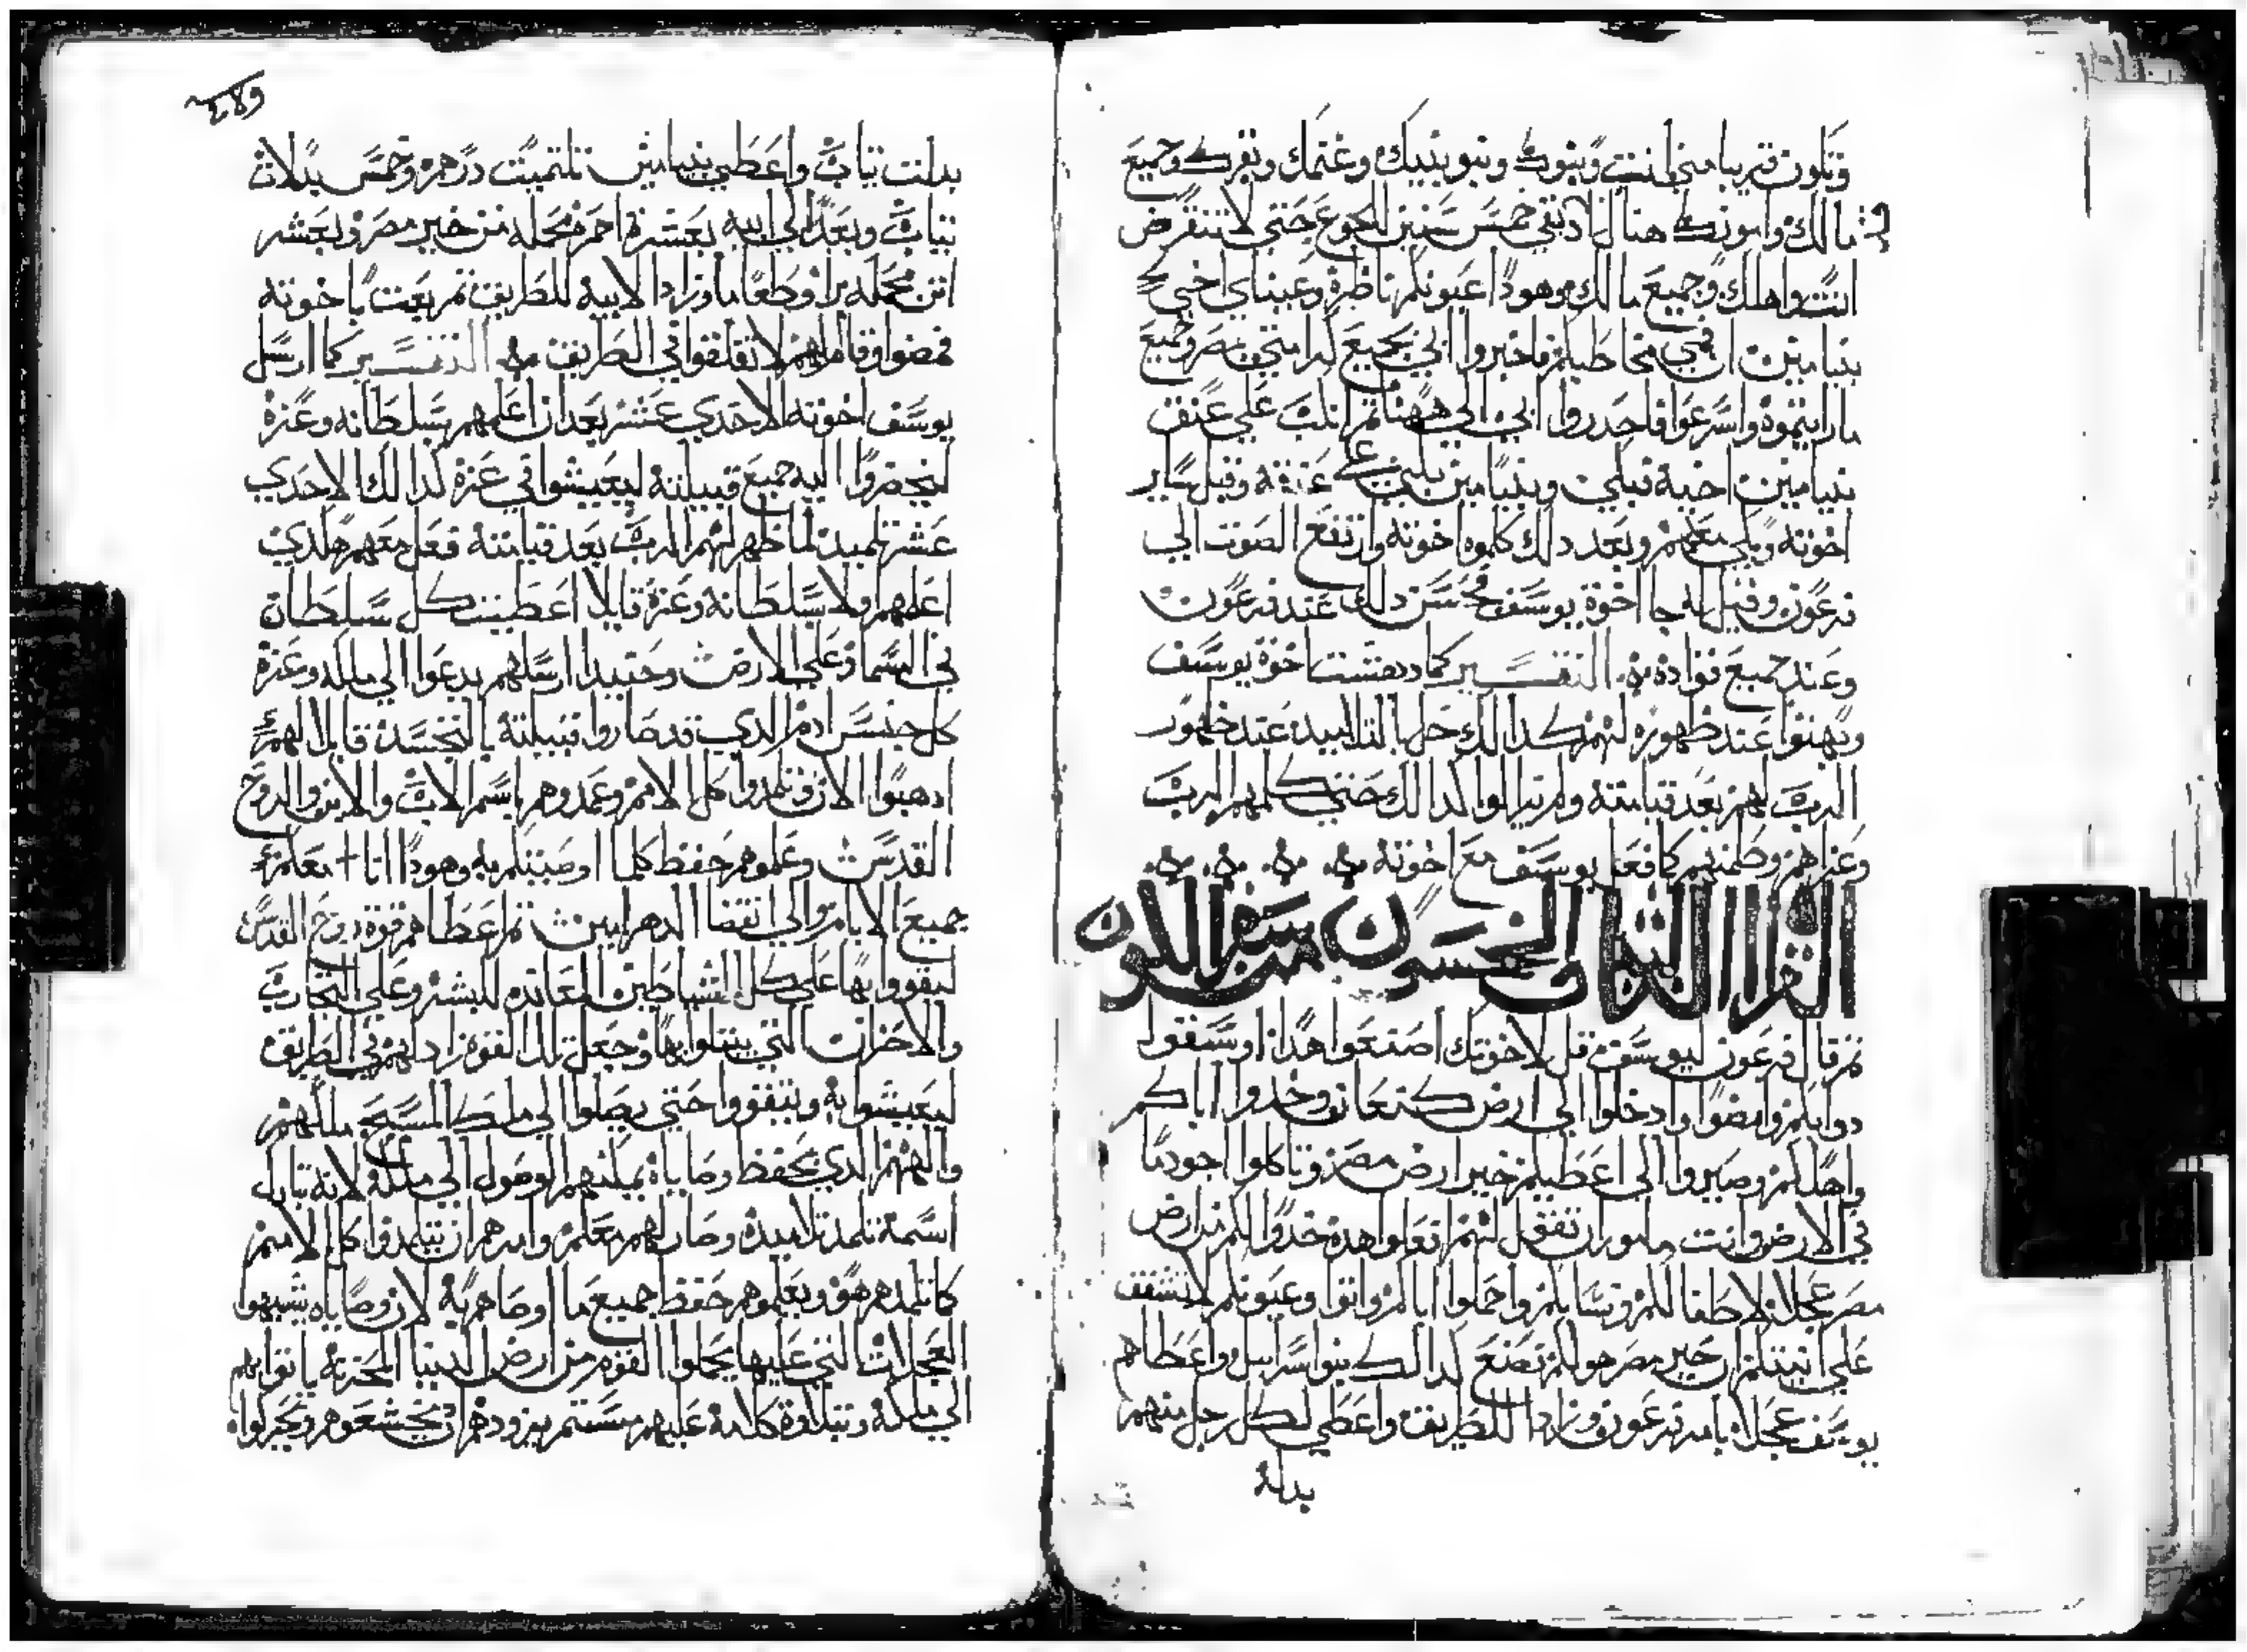 وتكون قريبا مني انت وبنوك وبنو بنيك وغنمك وبقرك وجميع
مالك وامونك هناك لاد بقي خمس سنين للجوع حتي لا تنقرض
انت واهلك وجميع مالك وهودا اعيونكم ناظرة وعيناي اخي
بنيامين ان فمي مخاطبكم فاخبروا ابي بجميع كرامتي بمصر وجميع
ما رايتموه واسرعوا فاحدروا ابي الي ههنا ثم انكب علي عنق
بنيامين اخيه فبكي وبنيامين بكي علي عنقه وقبل ساير
اخوته وبكي معهم وبعد دلك كلموه اخوته وارتفع الصوت الي
فرعون وقيل له جا اخوة يوسف فحسن دلك عند فرعون
وعند جميع قواده التفسير كما دهشت اخوة يوسف
وبهتوا عند ظهوره لهم كدالك حل بالتلاميد عند ظهور
الرب لهم بعد قيامته ولم يزالوا كدالك حتي كلمهم الرب
وعزاهم وطمنهم كما فعل يوسف مع اخوته
القراه الثانيه والخمسون من سفر التكوين
ثم قال فرعون ليوسف قل لاخوتك اصنعوا هدا اوسقوا
دوابكم وامضوا وادخلوا الي ارض كنعان وخدوا اباكم
واهلكم وصيروا الي اعطيكم خير ارض مصر وتاكلوا اجود ما
في الارض وانت مامور ان تقول لهم افعلوا هده خدوا لكم من ارض
مصر عجلا لاطفالكم ونسايكم واحملوا اباكم واتوا وعيونكم لا تشفق
علي انيتكم ان خير مصر هو لكم فصنع كدالك بنوا اسراييل واعطاهم
يوسف عجلا بامر فرعون وزادا للطريق واعطي لكل رجل منهم
بدلة
بدلت تياب واعطي بنيامين تلتميت درهم وخمس بدلات
تياب وبعد الي ابيه بعشرة احمره محمله من خير مصر وبعشر
اتن محمله برا وطعاما وزادا لابيه للطريق ثم بعت باخوته
فمضوا وقال لهم لا تقلقوا في الطريق التفسير كما ارسل
يوسف اخوته الاحدي عشر بعد ان اعلمهم بسلطانه وعزه
ليحضروا اليه جميع قبيلته ليعيشوا في عزه كدالك الاحدي
عشر تلميد لما ظهر لهم الرب بعد قيامته فعل معهم هكدي
اعلمهم اولا بسلطانه وعزه قايلا اعطيت كل سلطان
في السما وعلي الارض وحينيد ارسلهم يدعوا الي ملكه وعزه
كل جنس ادم الدي قد صاروا قبيلته بالتجسد قايلا لهم
ادهبوا الان فتلمدوا كل الامم وعمدوهم باسم الاب والابن والروح
القدس وعلموهم حفظ كلما اوصيتكم به وهودا انا معكم
جميع الايام والي انقضا الدهر امين ثم اعطاهم قوة روح القدس
ليقووا بها علي كل الشياطين المعانده للبشر وعلي التجارب
والاحزان التي يبتلوا بها وجعل تلك القوه زادا لهم في الطريق
ليعيشوا به ويتقووا حتي يصلوا الي ملك المسيح ملكهم
والههم الدي يحفظ وصاياه يمكنهم الوصول الي ملكه لانه تبارك
اسمه تلمد تلاميده وصار لهم معلم وامرهم ان يتلمدوا كل الامم
كما تلمدهم هو ويعلموهم حفظ جميع ما اوصاهم به لان وصاياه يشبهوا
العجلات التي عليها يحملوا القوم من ارض الدنيا المحزنه ياتوا بهم
الي ملكه وتبلاوة كلامه عليهم مستمر يبرودهم ان يخشعوهم ويحركوا